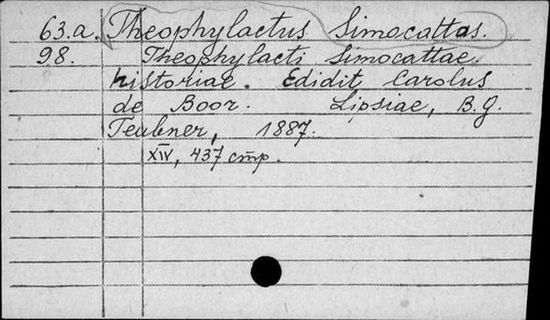 63.a. Theophylactus Simocattas.
98. Theophylacti Simocattae
historiae. Edidit Carolus
de Boor. Lipsiae, B.G.
Teubner, 1887.
XIV, 437 стр.